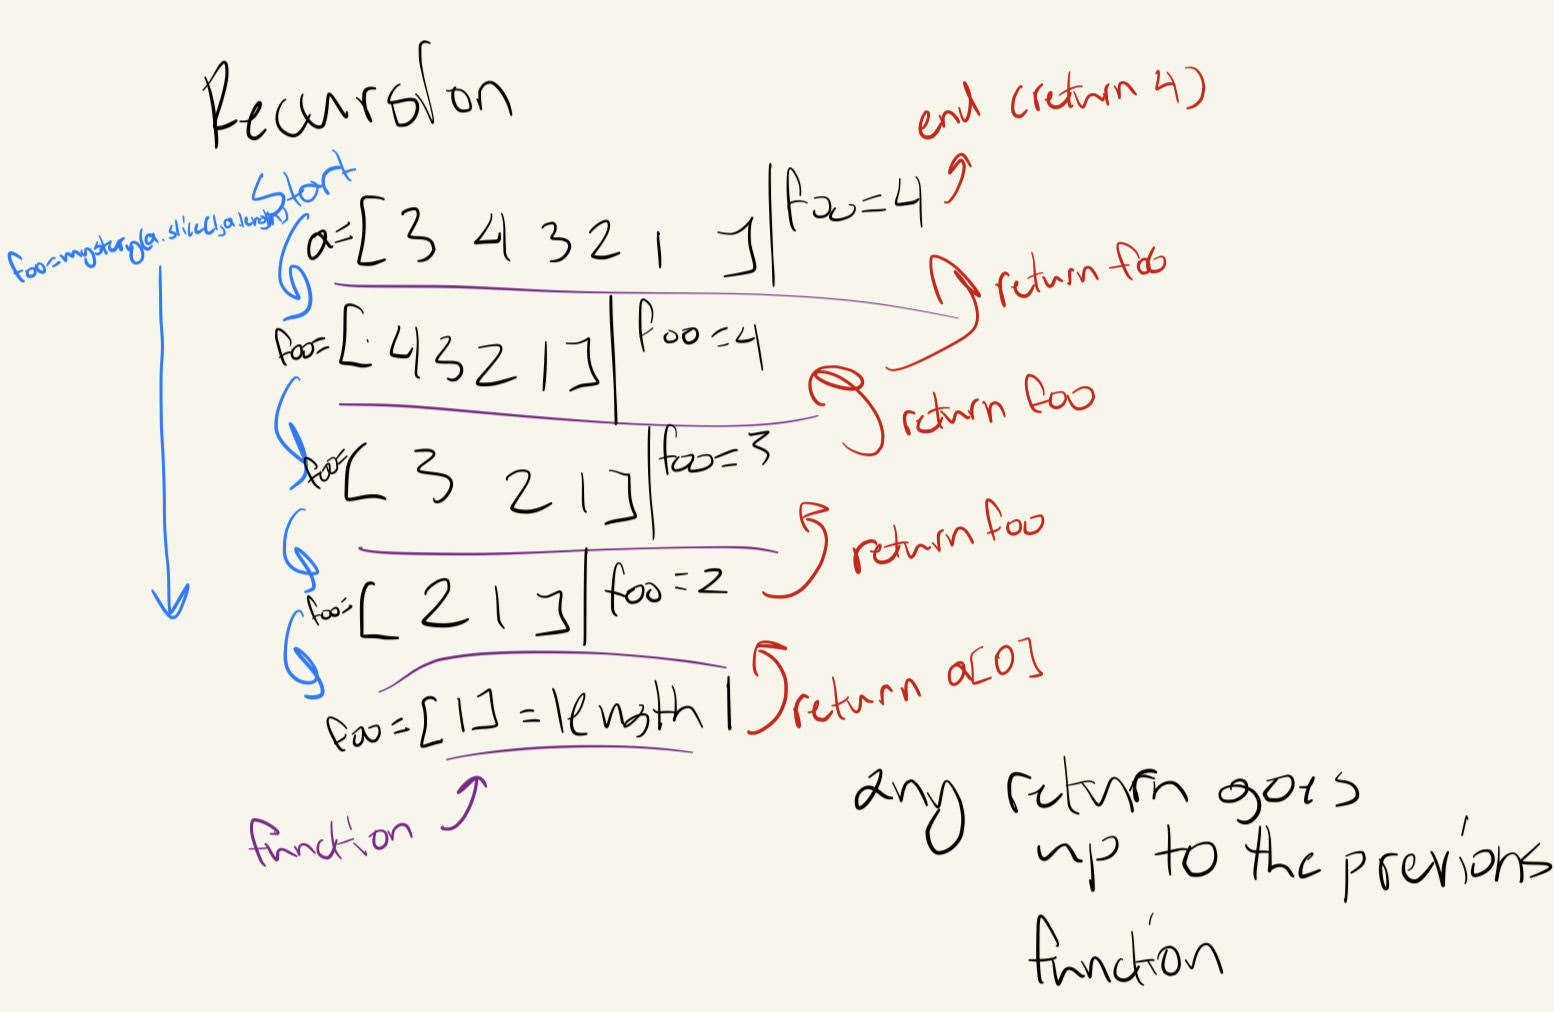 Recursion
end (return 4)
Start
foo=mystery(a.slice(1,a.length)
a=[3 4 3 2 1 ] foo=4
return foo
foo=[4 3 2 1] foo=4
return foo
foo=[3 2 1] foo=3
return foo
foo=[2 1] foo=2
return a[0]
foo=[1]=length 1
function
any return goes
up to the previous
function